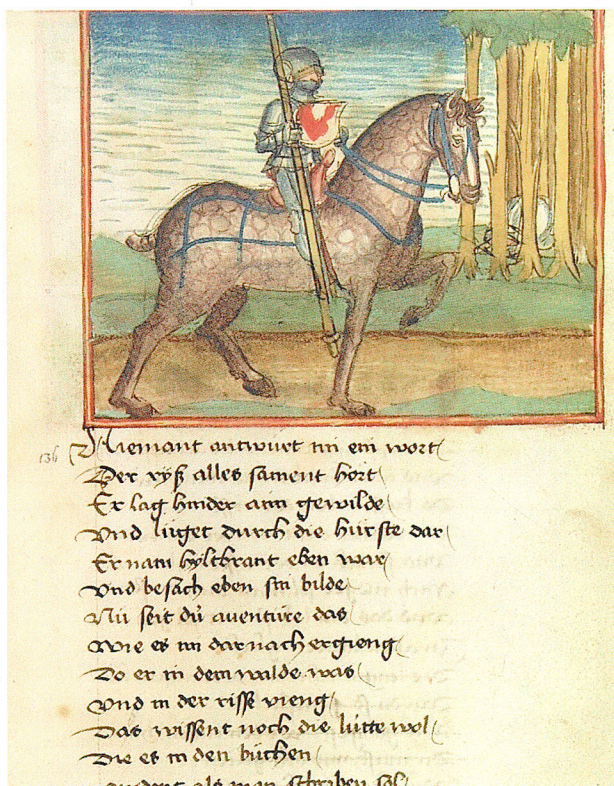 136
Niemant antwurt im ein wort
Der ryß alles sament hort
Er lag hinder aim gewilde
Vnd lüget durch die hürste dar
Er nam hyltbrant eben war
Vnd besach eben sin bilde
Nü seit dü auentüre das
Wie es im dar nach ergieng
Do er in dem walde was
Vnd in der risse vieng
Das wissent noch die lütte wol
Die es in den büchen
als man schriben sol